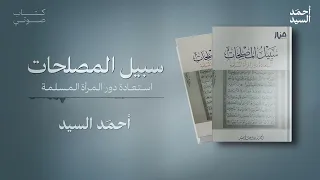 كتاب
صوتي
أحمَد
السيد
سبيل المصلحات
استعادة دور المرأة المسلمة
أحمَد السيد
سبيل المصلحات